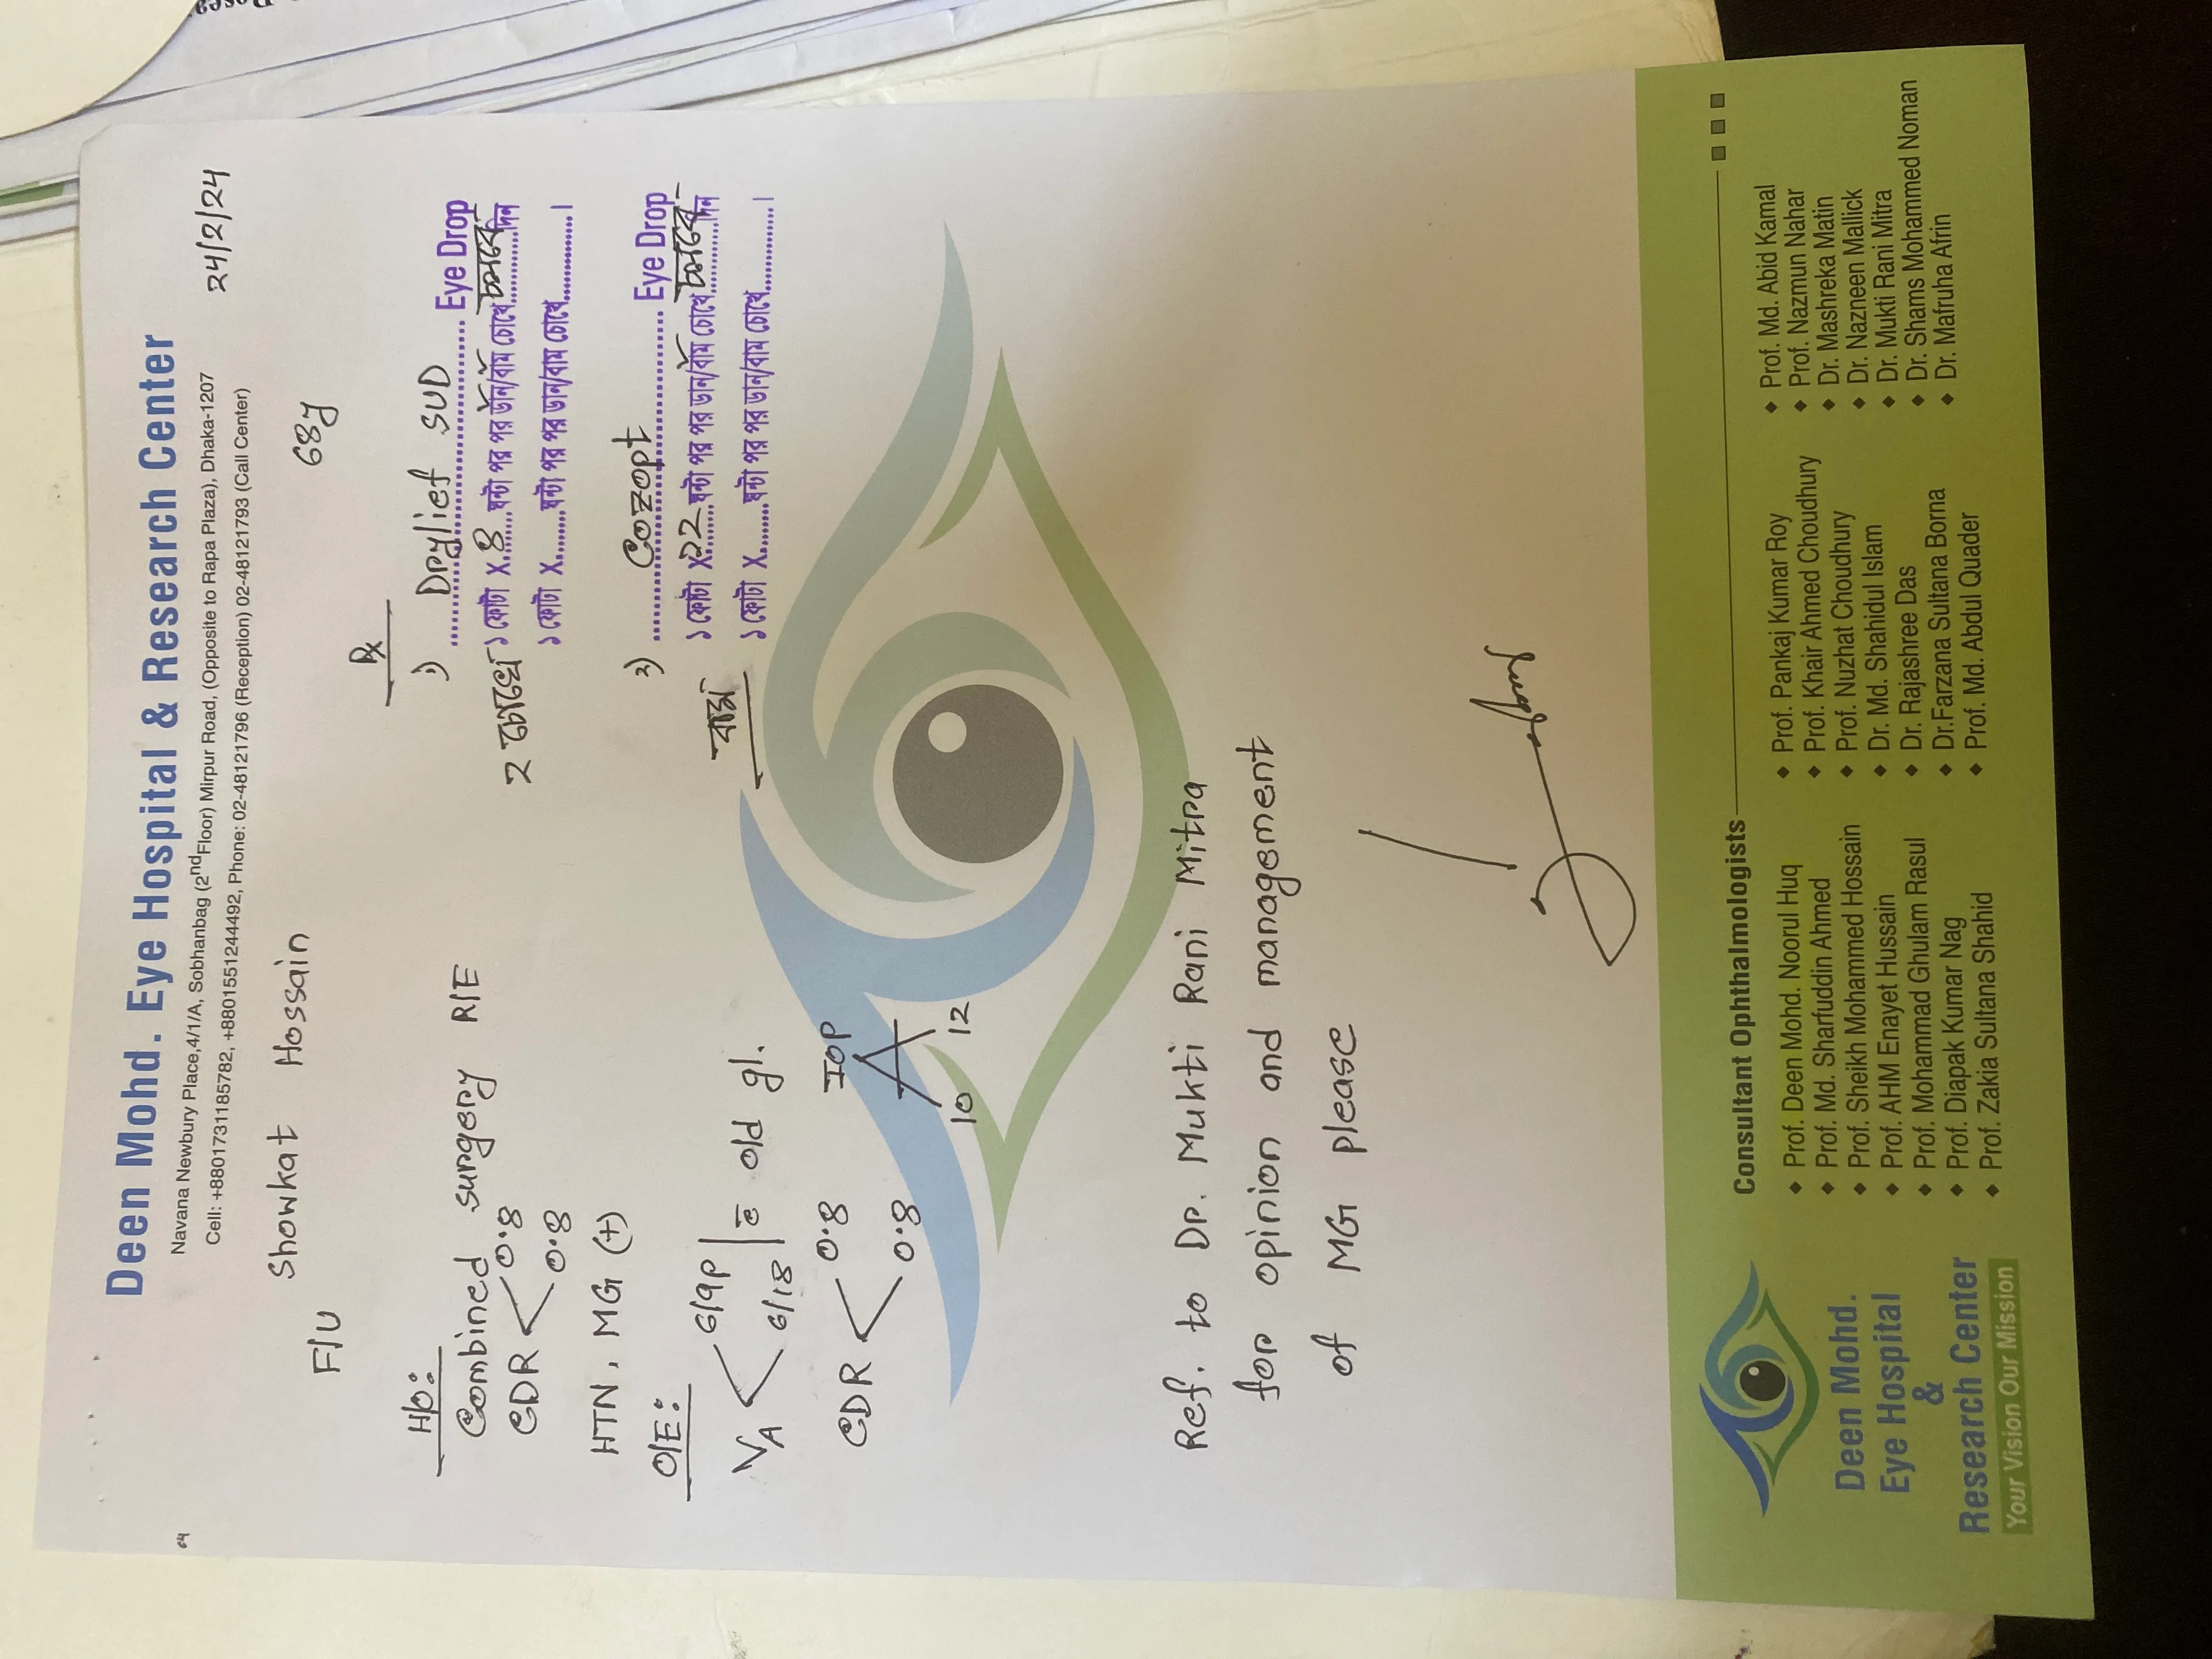 Deen Mohd. Eye Hospital & Research Center
Navana Newbury Place,4/1/A, Sobhanbag (2nd Floor) Mirpur Road, (Opposite to Rapa Plaza), Dhaka-1207
Cell: +8801731185782, +8801551244492, Phone: 02-48121796 (Reception) 02-48121793 (Call Center)
24/2/24
Showkat Hossain
68y
F/U
H/O:
Combined surgery R/E
CDR < 0.8
0.8
HTN, MG (+)
O/E:
VA < 6/9P
6/18 c̄ old gl.
CDR < 0.8
0.8
IOP
10 12
Rx
1) Drylief SUD Eye Drop
২ চোখে ১ ফোটা X ৪ ঘন্টা পর পর ডান/বাম চোখে চলবে দিন
১ ফোটা X ঘন্টা পর পর ডান/বাম চোখে
২) Cozopt Eye Drop
বাম ১ ফোটা X ১২ ঘন্টা পর পর ডান/বাম চোখে চলবে দিন
১ ফোটা X ঘন্টা পর পর ডান/বাম চোখে
Ref. to Dr. Mukti Rani Mitra
for opinion and management
of MG please
Deen Mohd.
Eye Hospital
&
Research Center
Your Vision Our Mission
Consultant Ophthalmologists
Prof. Deen Mohd. Noorul Huq
Prof. Md. Sharfuddin Ahmed
Prof. Sheikh Mohammed Hossain
Prof. AHM Enayet Hussain
Prof. Mohammad Ghulam Rasul
Prof. Diapak Kumar Nag
Prof. Zakia Sultana Shahid
Prof. Pankaj Kumar Roy
Prof. Khair Ahmed Choudhury
Prof. Nuzhat Choudhury
Dr. Md. Shahidul Islam
Dr. Rajashree Das
Dr.Farzana Sultana Borna
Prof. Md. Abdul Quader
Prof. Md. Abid Kamal
Prof. Nazmun Nahar
Dr. Mashreka Matin
Dr. Nazneen Mallick
Dr. Mukti Rani Mitra
Dr. Shams Mohammed Noman
Dr. Mafruha Afrin